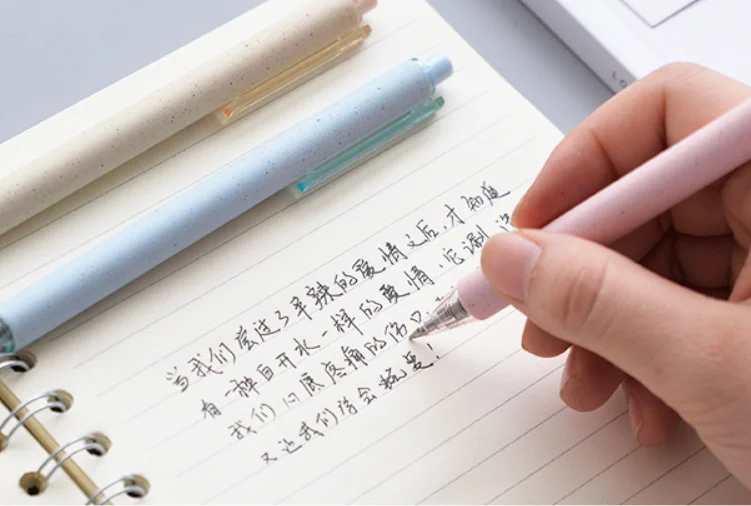 当我们尝过了辛辣的爱情之后,才知道
有一种白开水一样的爱情,它
我们 疼痛的伤口
又让我们学会